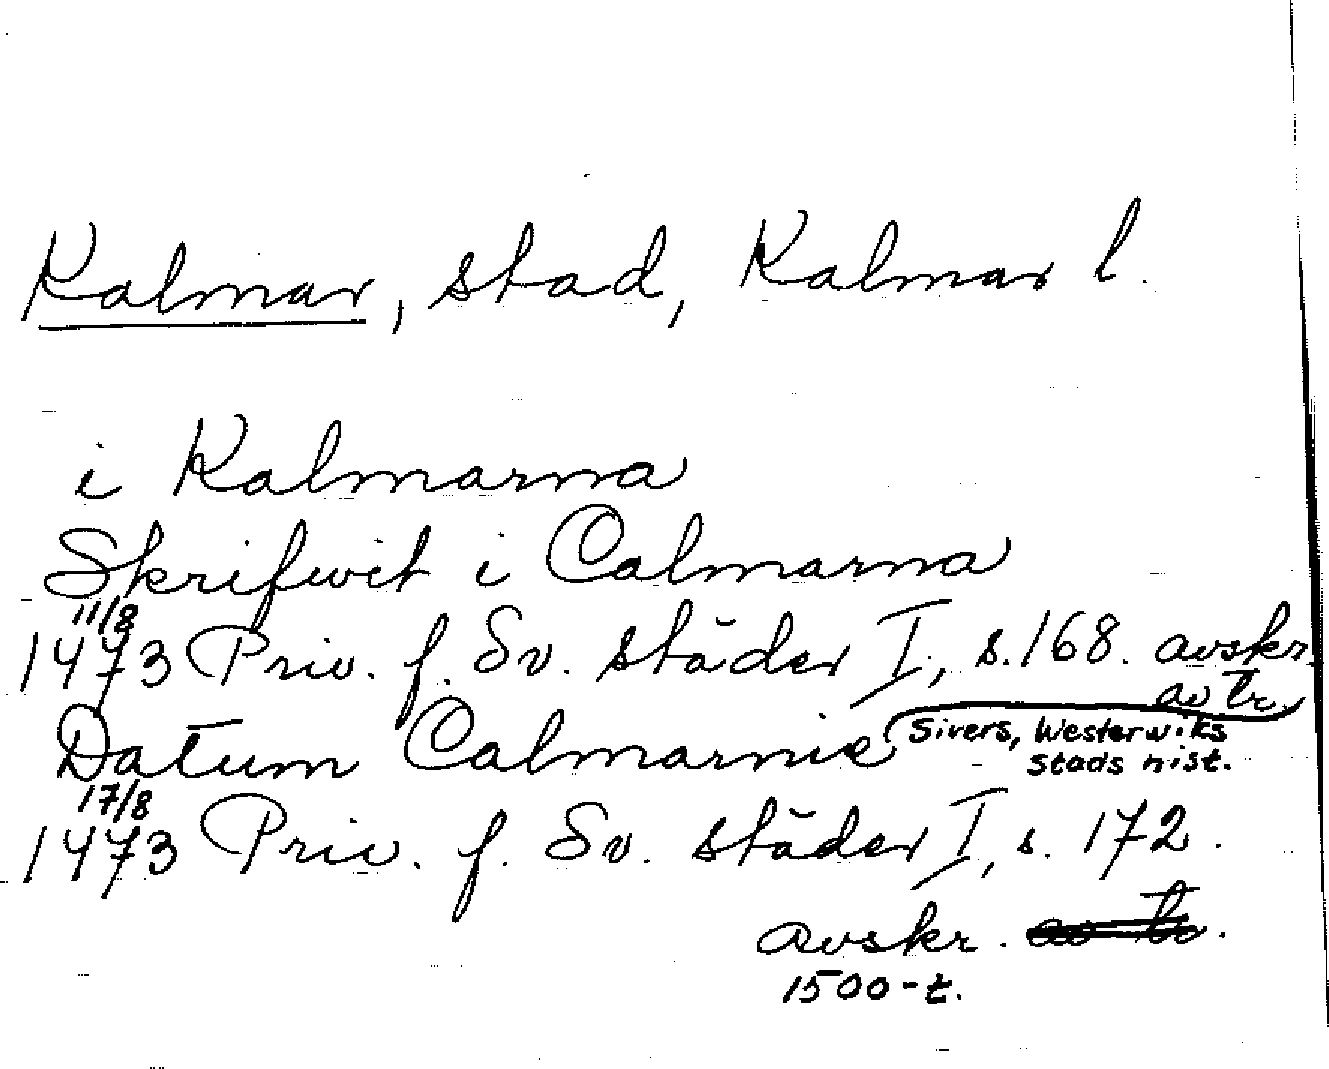 Kalmar, stad, Kalmar l.
i Kalmarna
Skrifwit i Calmarna
11/8
1473 Priv. f. Sv. städer I, s. 168. avskr.
av tr.
Datum Calmarnie Sivers, Westerwiks
stads hist.
17/8
1473 Priv. f. Sv. städer I, s. 172.
avskr. av tr.
1500-t.